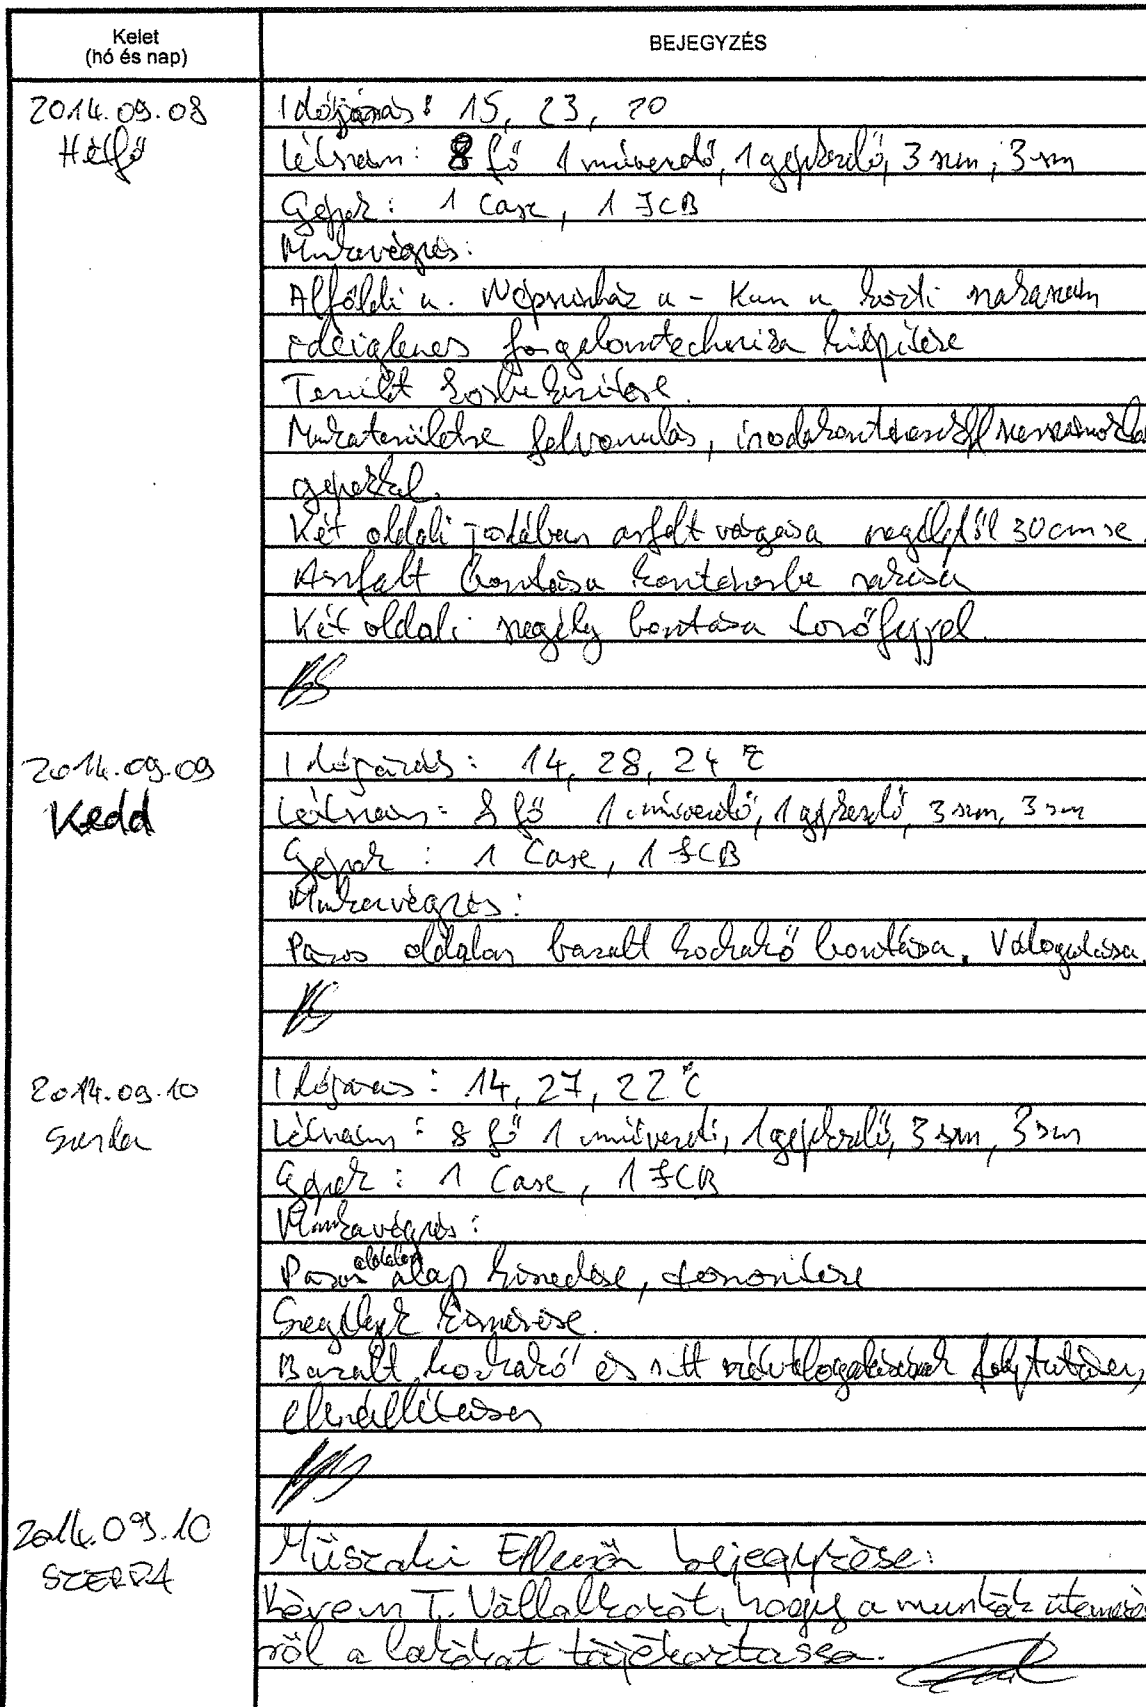 Kelet
(hó és nap)
BEJEGYZÉS
2014.09.08
Hétfő
Időjárás: 15, 23, 20
Létszám: 8 fő 1 művezető, 1 gépkezelő, 3 szm, 3 sm
Gépek: 1 Case, 1 JCB
Munkavégzés:
Alföldi u. Népszínház u - Kun u közti szakaszán
ideiglenes forgalomtechnika kiépítése
Terület körbekerítése.
Munkaterületre felvonulás, irodakonténerrel
gépekkel.
Két oldali járdában aszfalt vágása szegélytől 30cm-re.
Aszfalt bontása konténerbe rakása
Két oldali szegély bontása törőfejjel.
2014.09.09
Kedd
Időjárás: 14, 28, 24 °C
Létszám: 8 fő 1 művezető, 1 gépkezelő, 3 szm, 3 sm
Gépek: 1 Case, 1 JCB
Munkavégzés:
Páros oldalon bazalt kockakő bontása, Válogatása.
2014.09.10
Szerda
Időjárás: 14, 27, 22 °C
Létszám: 8 fő 1 művezető, 1 gépkezelő, 3 szm, 3 sm
Gépek: 1 Case, 1 JCB
Munkavégzés:
Páros oldalon alap kiszedése, tömörítése
Szegélyek kimérése.
Bazalt kockakő és sitt szétválogatásának folytatása,
elszállítása
2014.09.10
SZERDA
Műszaki Ellenőr bejegyzése:
Kérem T. Vállalkozót, hogy a munkák ütemezésé-
ről a lakókat tájékoztassa.